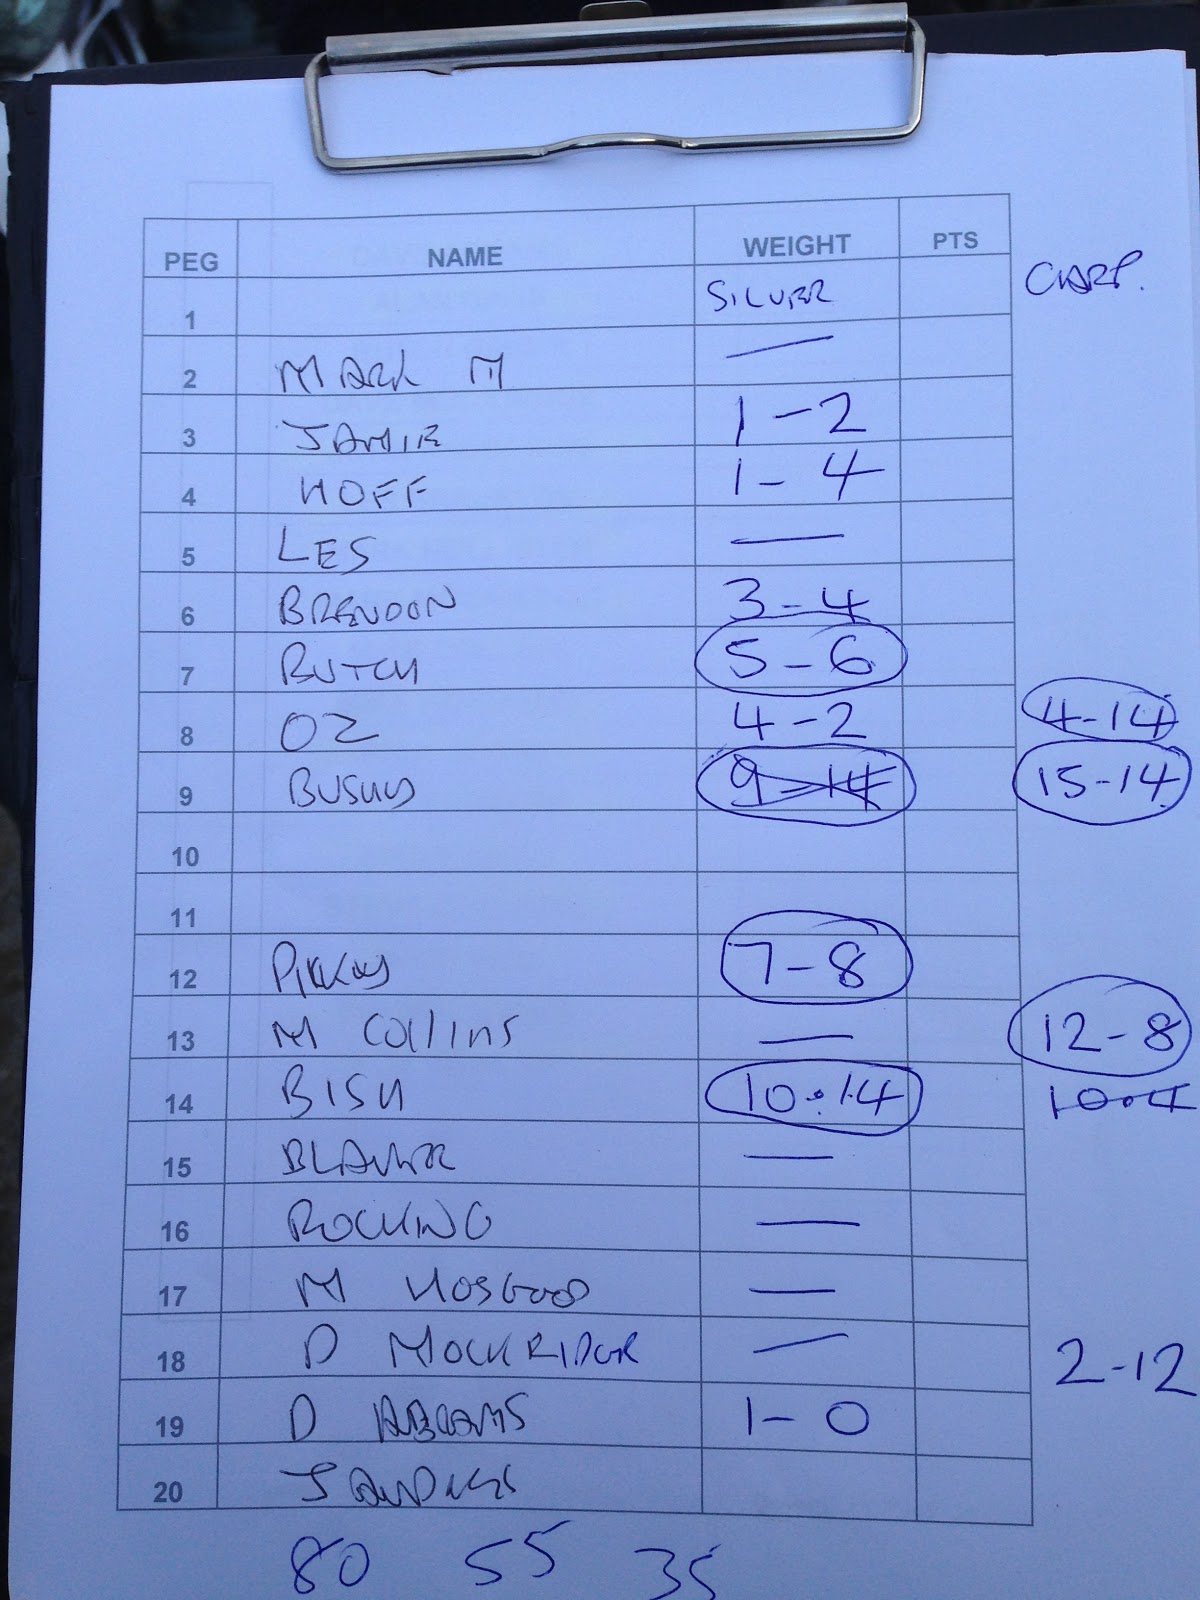 PEG NAME WEIGHT PTS
1 SILVER CARP.
2 MARK M —
3 JAMIE 1-2
4 HOFF 1-4
5 LES —
6 BRENDON 3-4
7 BUTCH 5-6
8 OZ 4-2 4-14
9 BUSHY 9-14 15-14
10
11
12 7-8
13 M Collins — 12-8
14 BISH 10.14 10.4
15 —
16 ROCKING —
17 M HOSGOOD —
18 D MOCKRIDGE — 2-12
19 D ABRAMS 1-0
20
80 55 35